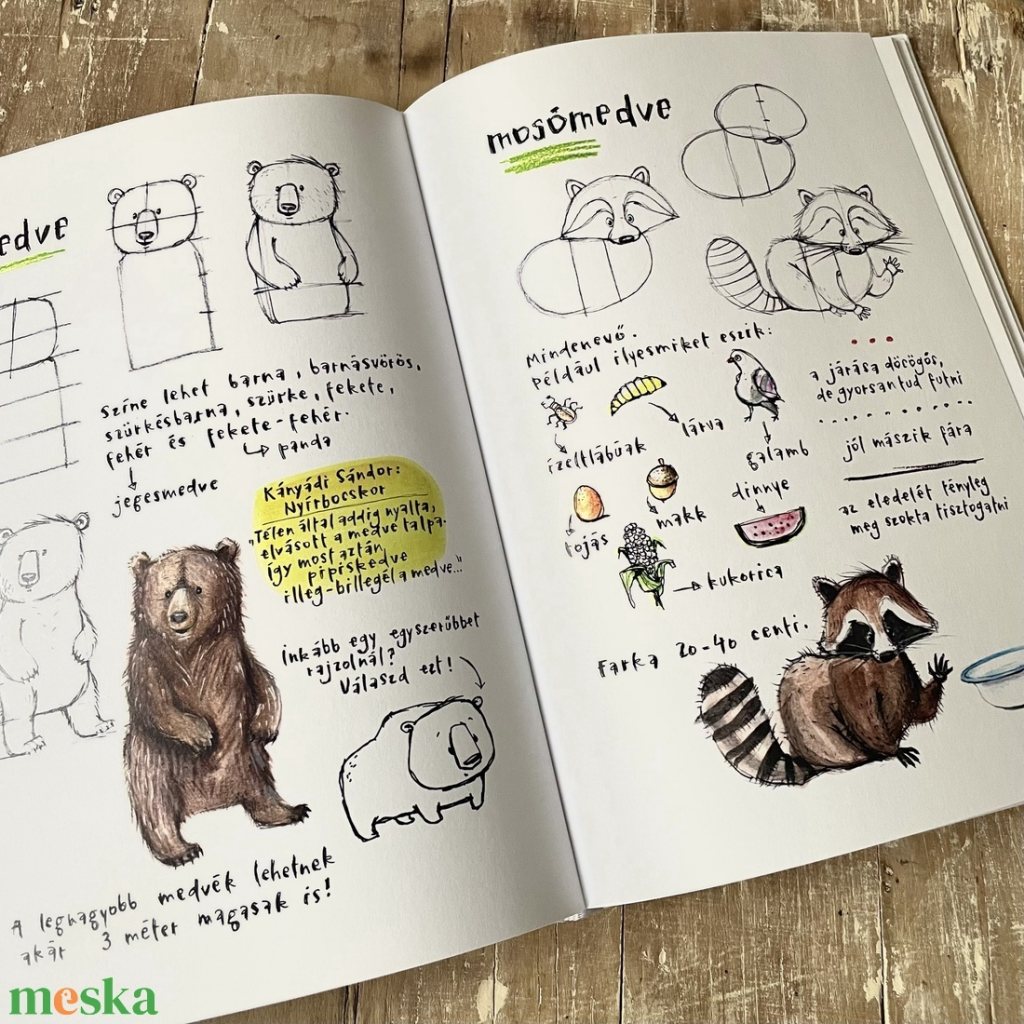 edve
Színe lehet barna, barnásvörös,
szürkésbarna, szürke, fekete,
fehér és fekete-fehér.
panda
jegesmedve
Kányádi Sándor:
Nyírbocskor
"Télen által addig nyalta,
elvásott a medve talpa.
Így most aztán
pipiskedve
illeg-billegél a medve..."
Inkább egy egyszerűbbet
rajzolnál?
Válaszd ezt!
A legnagyobb medvék lehetnek
akár 3 méter magasak is!
mosómedve
Mindenevő.
Például ilyesmiket eszik:
ízeltlábúak
lárva
galamb
tojás
makk
dinnye
kukorica
a járása döcögős,
de gyorsan tud futni
jól mászik fára
az eledelét tényleg
meg szokta tisztogatni
Farka 20-40 centi.
meska